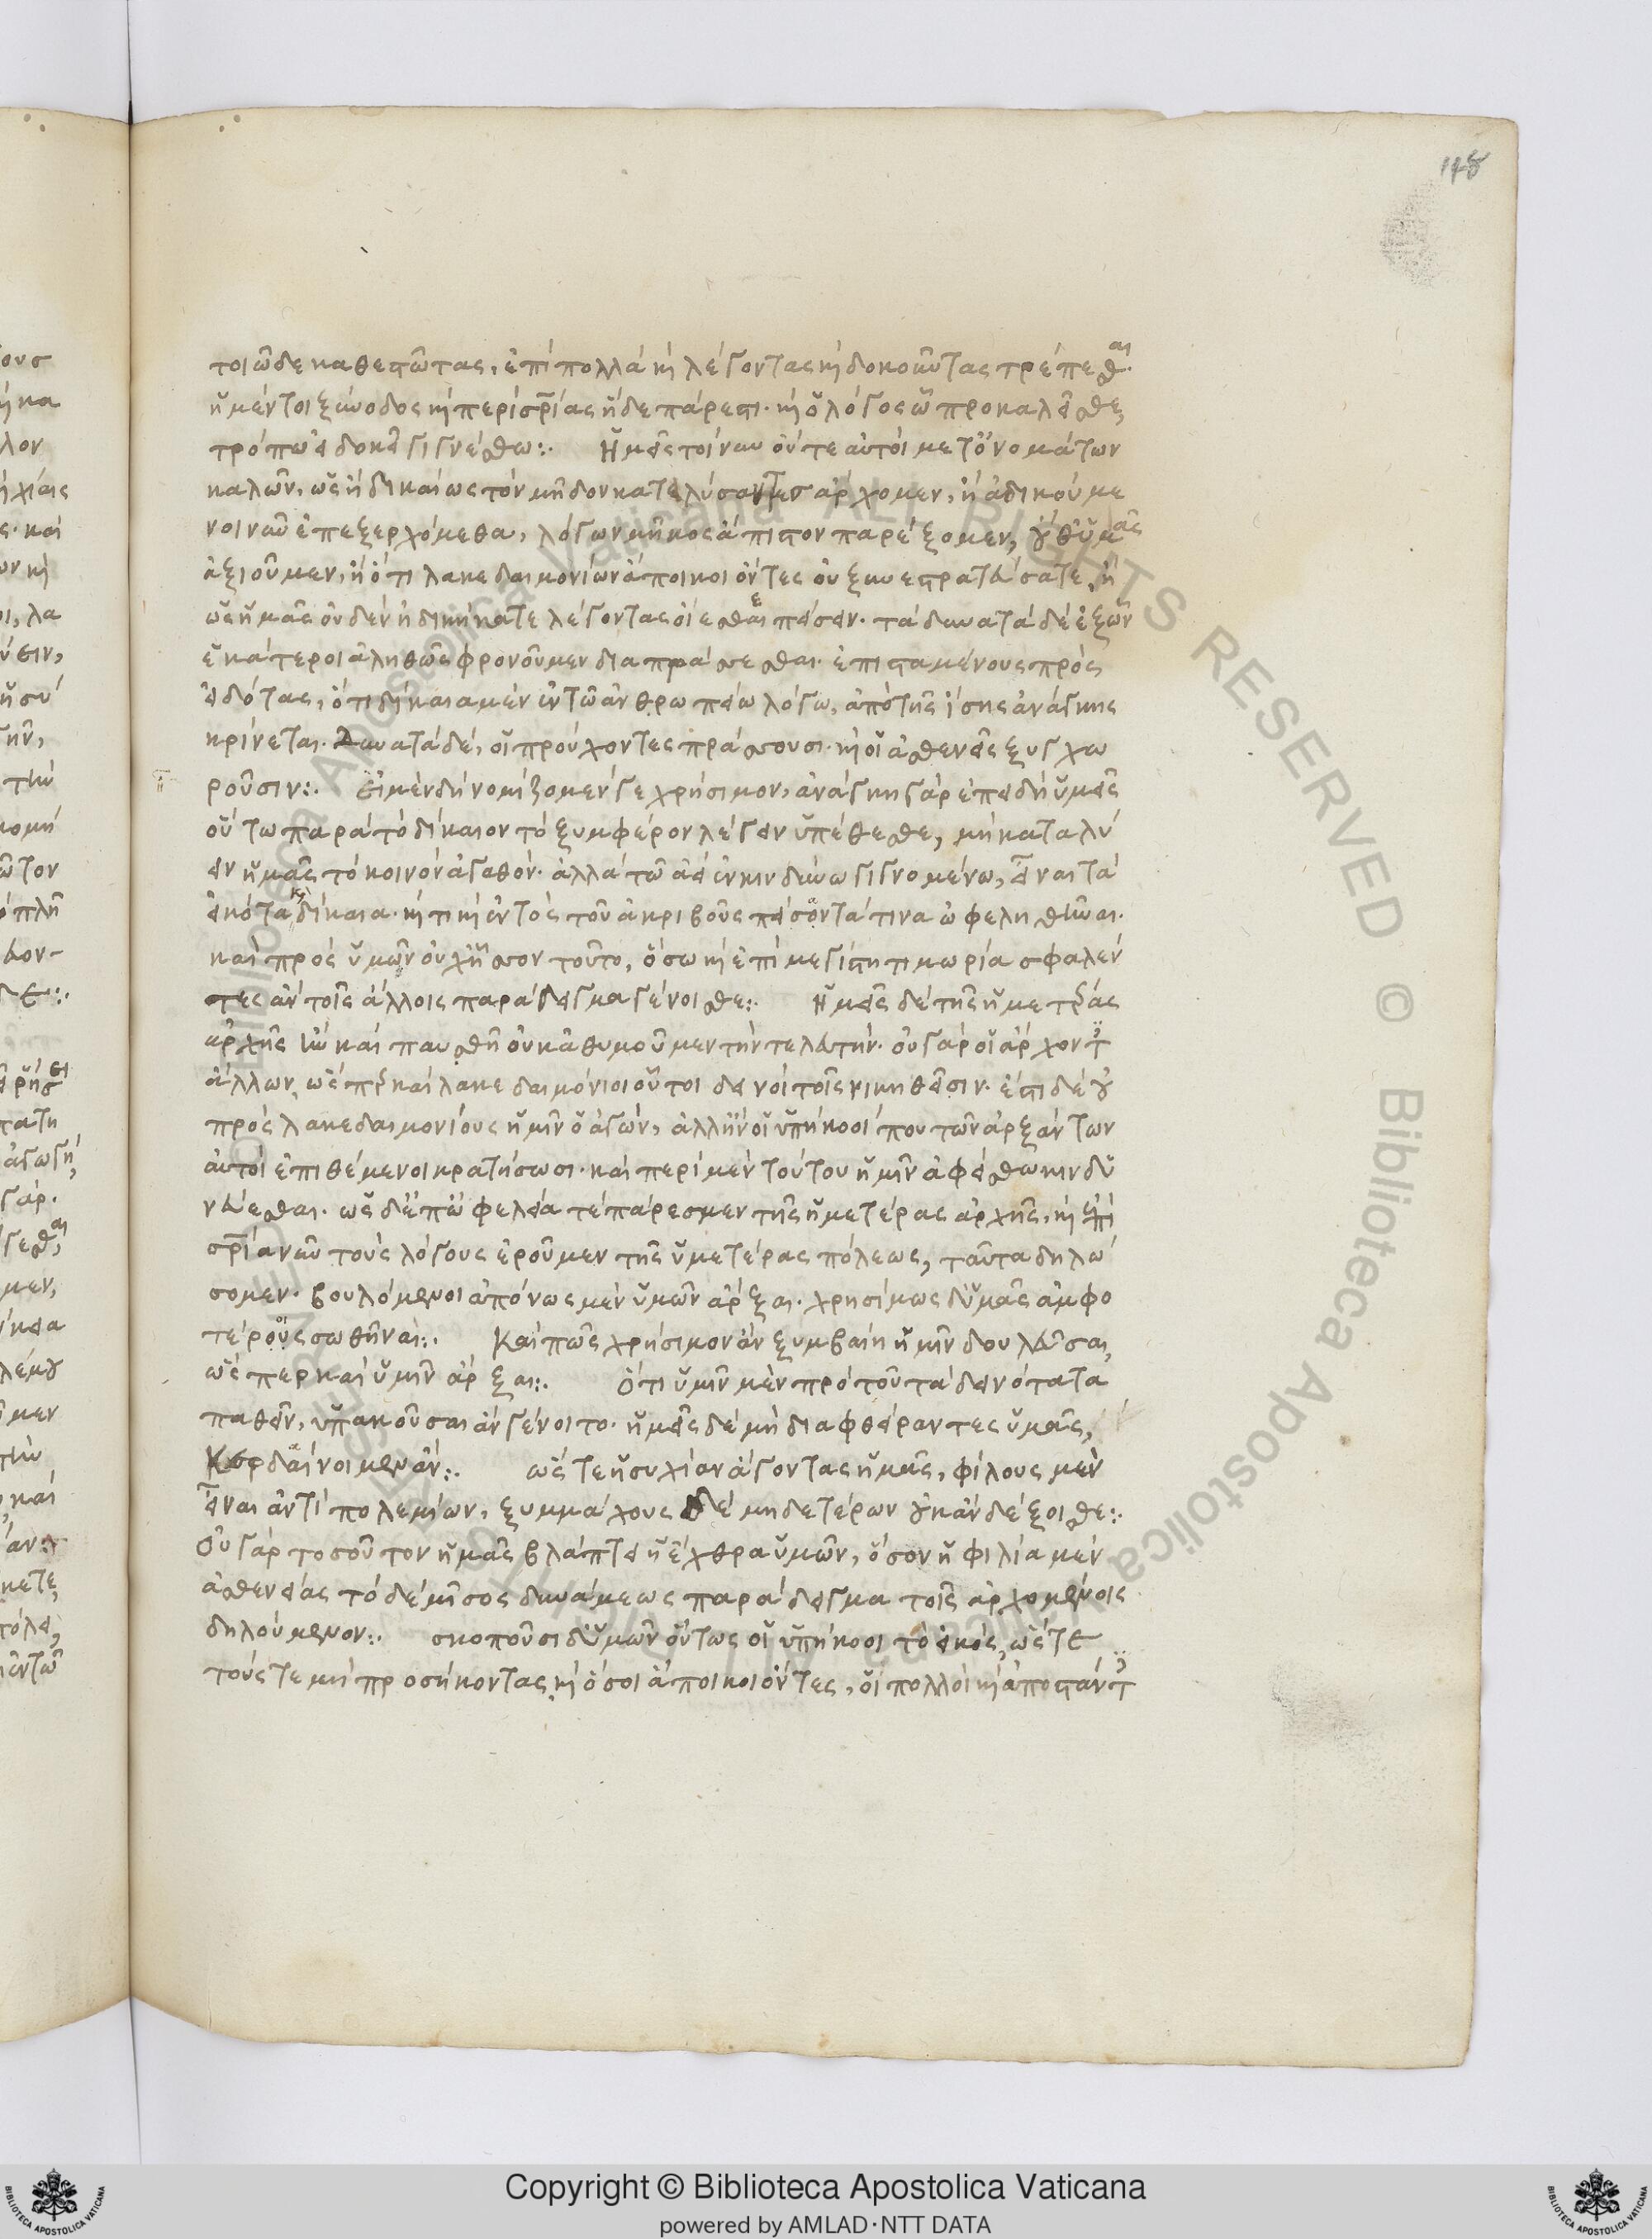 148
τοιῶδε καθεστῶτας, ἐπὶ πολλὰ καὶ λέγοντας καὶ δοκοῦντας τρέπεσθαι·
ἡ μέντοι ξύνοδος καὶ περὶ σωτηρίας ἥδε πάρεστι· καὶ ὁ λόγος ὧ προκαλεῖσθε,
τρόπω εἰ δοκεῖ γιγνέσθω:· Ἡμεῖς τοίνυν οὔτε αὐτοὶ μετ' ὀνομάτων
καλῶν, ὡς ἢ δικαίως τὸν μῆδον καταλύσαντες ἄρχομεν, ἢ ἀδικούμε
νοι νῦν ἐπεξερχόμεθα, λόγων μῆκος ἄπιστον παρέξομεν, οὔθ' ὑμᾶς
ἀξιοῦμεν, ἢ ὅτι λακεδαιμονίων ἄποικοι ὄντες οὐ ξυνεστρατεύσατε, ἢ
ὡς ἡμᾶς οὐδὲν ἠδικήκατε λέγοντας οἴεσθαι πείσειν· τὰ δυνατὰ δὲ ἐξ ὧν
ἑκάτεροι ἀληθῶς φρονοῦμεν διαπράσσεσθαι· ἐπισταμένους πρὸς
εἰδότας, ὅτι δίκαια μὲν ἐν τῶ ἀνθρωπείω λόγω, ἀπὸ τῆς ἴσης ἀνάγκης
κρίνεται· δυνατὰ δὲ, οἱ προύχοντες πράσσουσι· καὶ οἱ ἀσθενεῖς ξυγχω
ροῦσιν:· Εἰ μὲν δὴ νομίζομεν γε χρήσιμον, ἀνάγκη γὰρ ἐπειδὴ ὑμεῖς
οὕτω παρὰ τὸ δίκαιον τὸ ξυμφέρον λέγειν ὑπέθεσθε, μὴ καταλύ
ειν ἡμᾶς τὸ κοινὸν ἀγαθόν· ἀλλὰ τῶ ἀεὶ ἐν κινδύνω γιγνομένω, εἶναι τὰ
εἰκότα καὶ δίκαια· καί τι καὶ ἐντὸς τοῦ ἀκριβοῦς πείσοντά τινα ὠφεληθῆναι·
καὶ πρὸς ὑμῶν οὐχ ἧσσον τοῦτο, ὅσω καὶ ἐπὶ μεγίστη τιμωρία σφαλέν
τες ἂν τοῖς ἄλλοις παράδειγμα γένοισθε:· Ἡμεῖς δὲ τῆς ἡμετέρας
ἀρχῆς ἢν καὶ παυσθῆ οὐκ ἀθυμοῦμεν τὴν τελευτήν· οὐ γὰρ οἱ ἄρχοντες
ἄλλων, ὥσπερ καὶ λακεδαιμόνιοι οὗτοι δεινοὶ τοῖς νικηθεῖσιν· ἔστι δὲ οὐ
πρὸς λακεδαιμονίους ἡμῖν ὁ ἀγών, ἀλλ' ἢν οἱ ὑπήκοοί που τῶν ἀρξάντων
αὐτοὶ ἐπιθέμενοι κρατήσωσι· καὶ περὶ μὲν τούτου ἡμῖν ἀφείσθω κινδυ
νεύεσθαι· ὡς δὲ ἐπ' ὠφελεία τε πάρεσμεν τῆς ἡμετέρας ἀρχῆς, καὶ ἐπὶ
σωτηρία νῦν τοὺς λόγους ἐροῦμεν τῆς ὑμετέρας πόλεως, ταῦτα δηλώ
σομεν· βουλόμενοι ἀπόνως μὲν ὑμῶν ἄρξαι· χρησίμως δ' ὑμᾶς ἀμφο
τέροις σωθῆναι:· Καὶ πῶς χρήσιμον ἂν ξυμβαίη ἡμῖν δουλεῦσαι,
ὥσπερ καὶ ὑμῖν ἄρξαι:· Ὅτι ὑμῖν μὲν πρὸ τοῦ τὰ δεινότατα
παθεῖν, ὑπακοῦσαι ἂν γένοιτο· ἡμεῖς δὲ μὴ διαφθείραντες ὑμᾶς,
κερδαίνοιμεν ἄν:· ὥστε ἡσυχίαν ἄγοντας ἡμᾶς, φίλους μὲν
εἶναι ἀντὶ πολεμίων, ξυμμάχους δὲ μηδετέρων οὐκ ἂν δέξοισθε:·
Οὐ γὰρ τοσοῦτον ἡμᾶς βλάπτει ἡ ἔχθρα ὑμῶν, ὅσον ἡ φιλία μὲν
ἀσθενείας τὸ δὲ μῖσος δυνάμεως παράδειγμα τοῖς ἀρχομένοις
δηλούμενον:· σκοποῦσι δ' ὑμῶν οὕτως οἱ ὑπήκοοι τὸ εἰκός, ὥστε
τούς τε μὴ προσήκοντας, καὶ ὅσοι ἄποικοι ὄντες, οἱ πολλοὶ καὶ ἀποστάντες
Copyright © Biblioteca Apostolica Vaticana
powered by AMLAD·NTT DATA